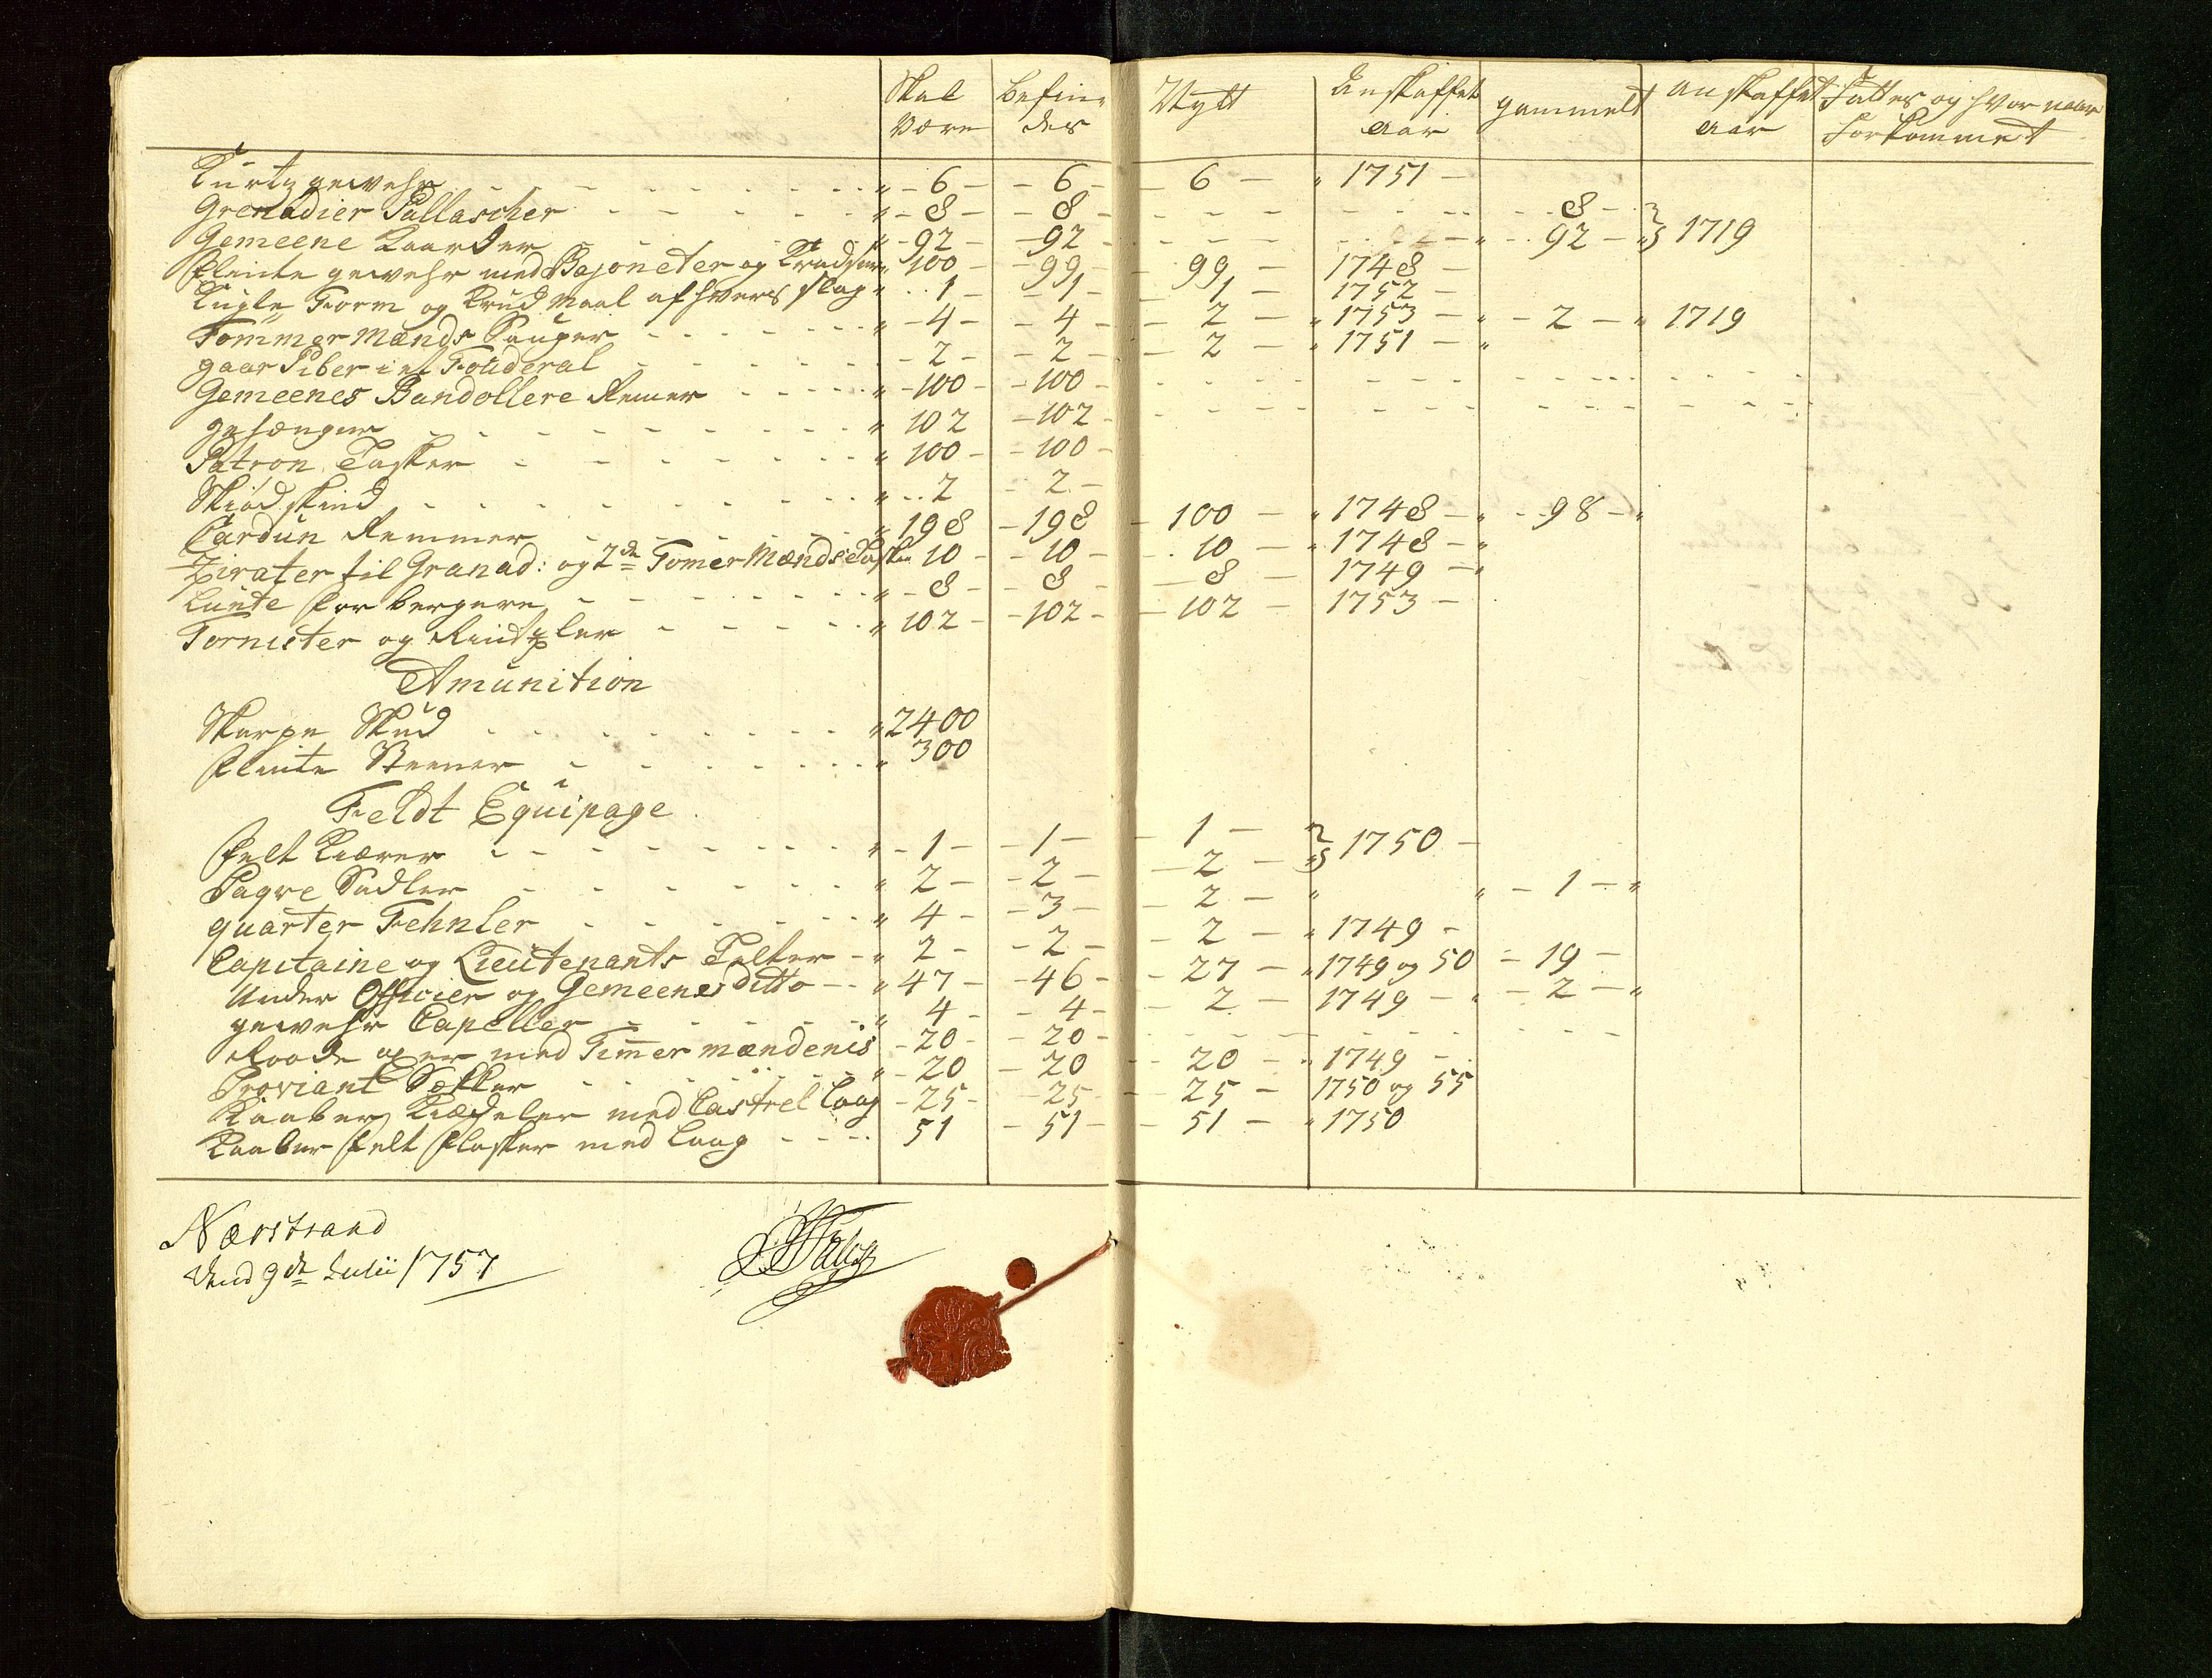 Skal Befin- Nytt Anskaffet gammelt anskaffet Fattes og hvor naar
Være des aar aar forkommet
Kürtzgewehr 6 6 6 1751
Grenadier Pallascher 8 8 8
Gemeene Kaarder 92 92 92 1719
Flinte gewehr med Bajoneter og Kradser 100 99 99 1748
Kugle Form og Krud Maal af hvers slag 1 1 1 1752
Tømmer Mænds Sauger 4 4 2 1753 2 1719
paar Piber i et Fouderal 2 2 2 1751
Gemeenes Bandollere Remer 100 100
gehænger 102 102
Patron Tasker 100 100
Skiødskind 2 2
Cardun Remmer 198 198 100 1748 98
Zirater til Granad: og 2de Tømer Mænds Tasker 10 10 10 1748
Lunte for bergere 8 8 8 1749
Tornister og Rindsler 102 102 102 1753
Amunition
Skarpe Skud 2400
Flinte Steener 300
Feldt Equipage
Felt Kiærer 1 1 1
Pagve Sadler 2 2 2 1750
quarter Fehnler 4 3 2 1
Capitaine og Lieutenants Telter 2 2 2 1749
Under Officier og Gemeenes ditto 47 46 27 1749 og 50 19
gewehr Capeller 4 4 2 1749 2
med Timmer mændenis 20 20
Proviant Sækker 20 20 20 1749
Kaaber Kiædeler med Castrel Laag 25 25 25 1750 og 55
Kaaber Felt Flasker med Laag 51 51 51 1750
Nærstrand
dend 9de Julii 1757